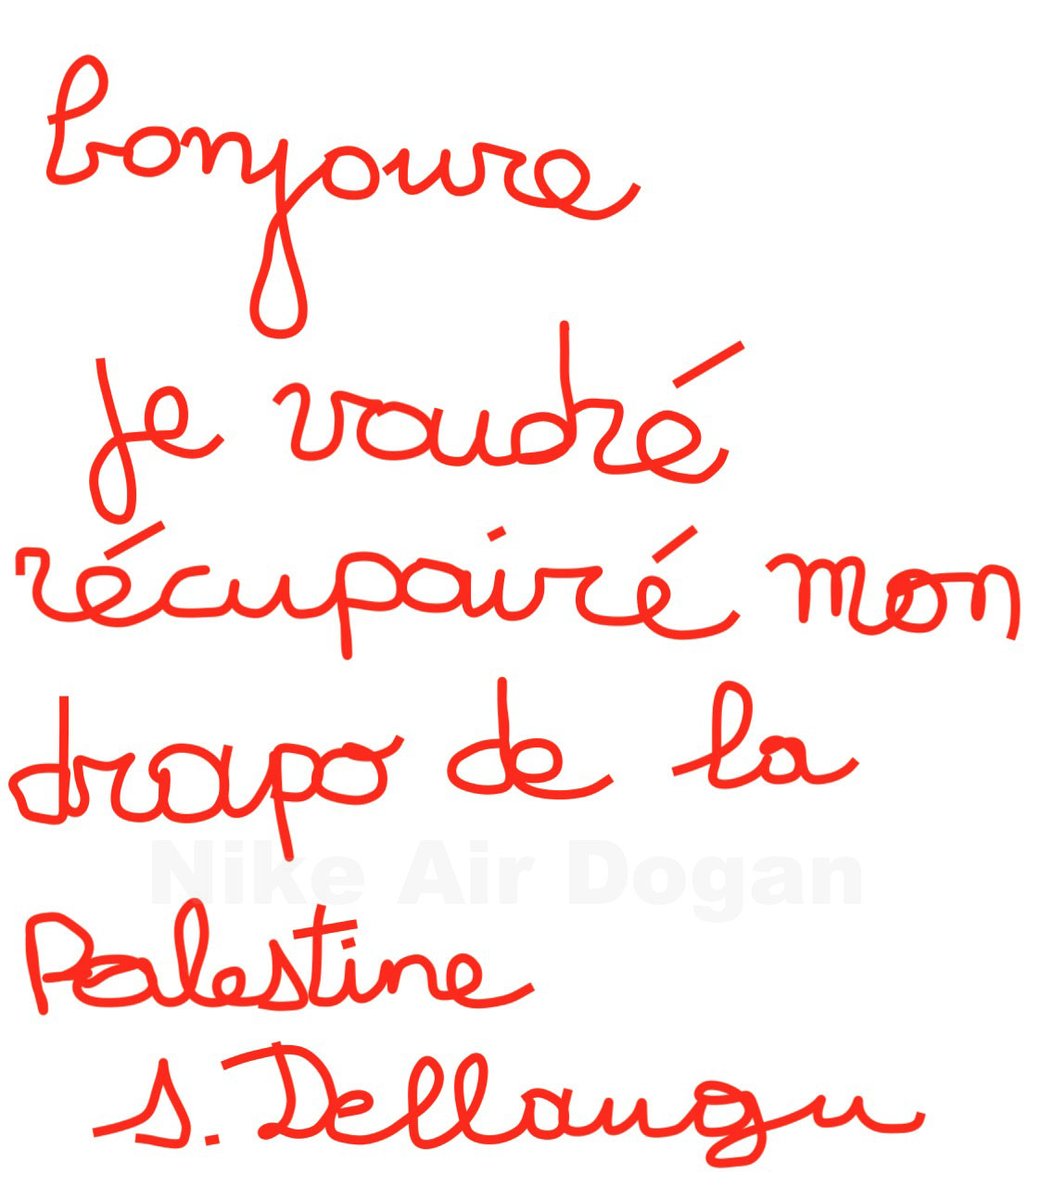 bonjoure
je voudré
récupairé mon
drapo de la
Nike Air Dogan
Palestine
s. Dellaugu